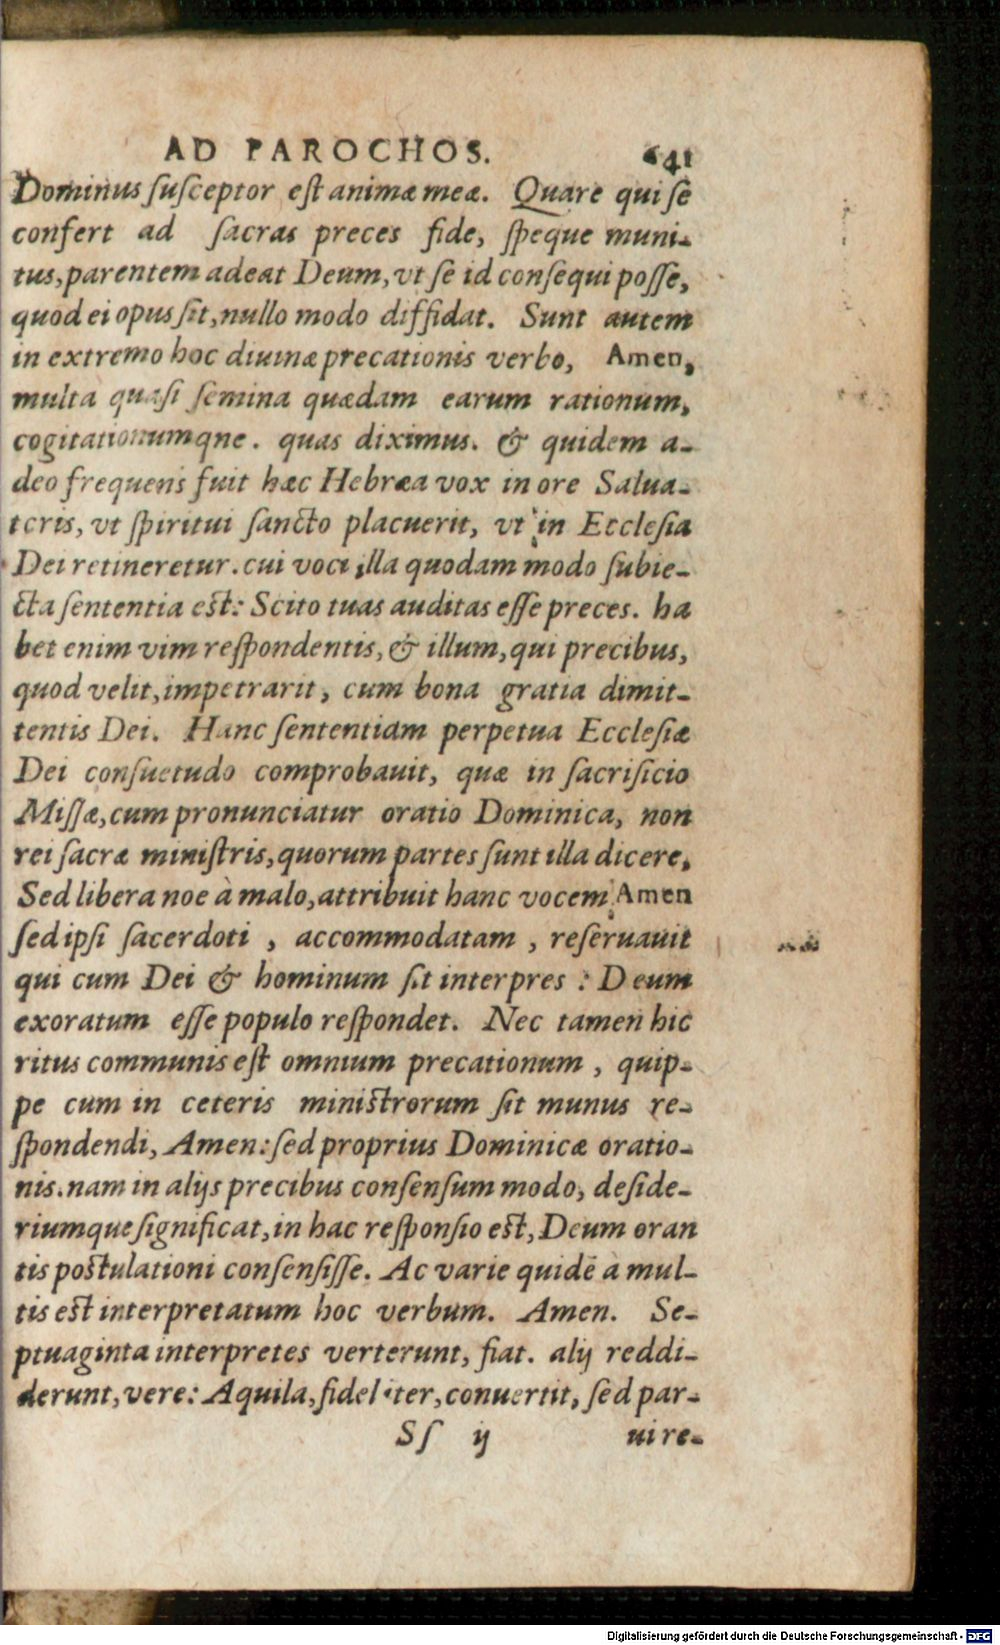 AD PAROCHOS. 641
Dominus ſuſceptor eſt animæ meæ. Quare qui ſe
confert ad ſacras preces fide, ſpeque muni-
tus, parentem adeat Deum, vt ſe id conſequi poſſe,
quod ei opus ſit, nullo modo diffidat. Sunt autem
in extremo hoc diuinæ precationis verbo, Amen,
multa quaſi ſemina quædam earum rationum,
cogitationumqne. quas diximus. & quidem a-
deo frequens fuit hæc Hebræa vox in ore Salua-
tcris, vt ſpiritui ſancto placuerit, vt in Eccleſia
Dei retineretur. cui voci illa quodam modo ſubie-
cta ſententia eſt: Scito tuas auditas eſſe preces. ha
bet enim vim reſpondentis, & illum, qui precibus,
quod velit, impetrarit, cum bona gratia dimit-
tentis Dei. Hanc ſententiam perpetua Eccleſiæ
Dei conſuetudo comprobauit, quæ in ſacrificio
Miſſæ, cum pronunciatur oratio Dominica, non
rei ſacræ miniſtris, quorum partes ſunt illa dicere,
Sed libera noe à malo, attribuit hanc vocem, Amen
ſed ipſi ſacerdoti , accommodatam , reſeruauit
qui cum Dei & hominum ſit interpres : Deum
exoratum eſſe populo reſpondet. Nec tamen hic
ritus communis eſt omnium precationum , quip-
pe cum in ceteris miniſtrorum ſit munus re-
ſpondendi, Amen: ſed proprius Dominicæ oratio-
nis. nam in alijs precibus conſenſum modo, deſide-
riumque ſignificat, in hac reſponſio eſt, Deum oran
tis poſtulationi conſenſiſſe. Ac varie quidē à mul-
tis eſt interpretatum hoc verbum. Amen. Se-
ptuaginta interpretes verterunt, fiat. alij reddi-
derunt, vere: Aquila, fideliter, conuertit, ſed par-
Sſ ij ui re-
Digitalisierung gefördert durch die Deutsche Forschungsgemeinschaft - DFG